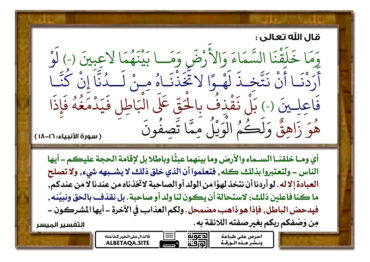 قال الله تعالى :
وَمَا خَلَقْنَا السَّمَاءَ وَالْأَرْضَ وَمَــا بَيْنَهُمَا لَاعِبِينَ (٠) لَوْ
أَرَدْنَــا أَنْ نَتَّخِــذَ لَهْــوًا لَاتَّخَذْنَــاهُ مِــنْ لَــدُنَّا إِنْ كُنَّــا
فَاعِلِــينَ (٠) بَلْ نَقْذِفُ بِالْحَقِّ عَلَى الْبَاطِلِ فَيَدْمَغُهُ فَإِذَا
هُوَ زَاهِقٌ وَلَكُمُ الْوَيْلُ مِمَّا تَصِفُونَ
( سورة الأنبياء: ١٦-١٨ )
أي وما خلقنا السماء والأرض وما بينهما عبثًا وباطلا بل لإقامة الحجة عليكم - أيها
الناس - ولتعتبروا بذلك كله، فتعلموا أن الذي خلق ذلك لا يشبهه شيء, ولا تصلح
العبادة إلا له. لو أردنا أن نتخذ لهوًا من الولد أو الصاحبة لاتخذناه من عندنا لا من عندكم،
ما كنا فاعلين ذلك; لاستحالة أن يكون لنا ولد أو صاحبة. بل نقذف بالحق ونبيِّنه,
فيدحض الباطل, فإذا هو ذاهب مضمحل. ولكم العذاب في الآخرة - أيها المشركون -
مِن وَصْفكم ربكم بغير صفته اللائقة به.
التفسير الميسر
فالدال على الخير كفاعله
ALBETAQA.SITE
احرص على طباعة
ونشر هذه الورقة